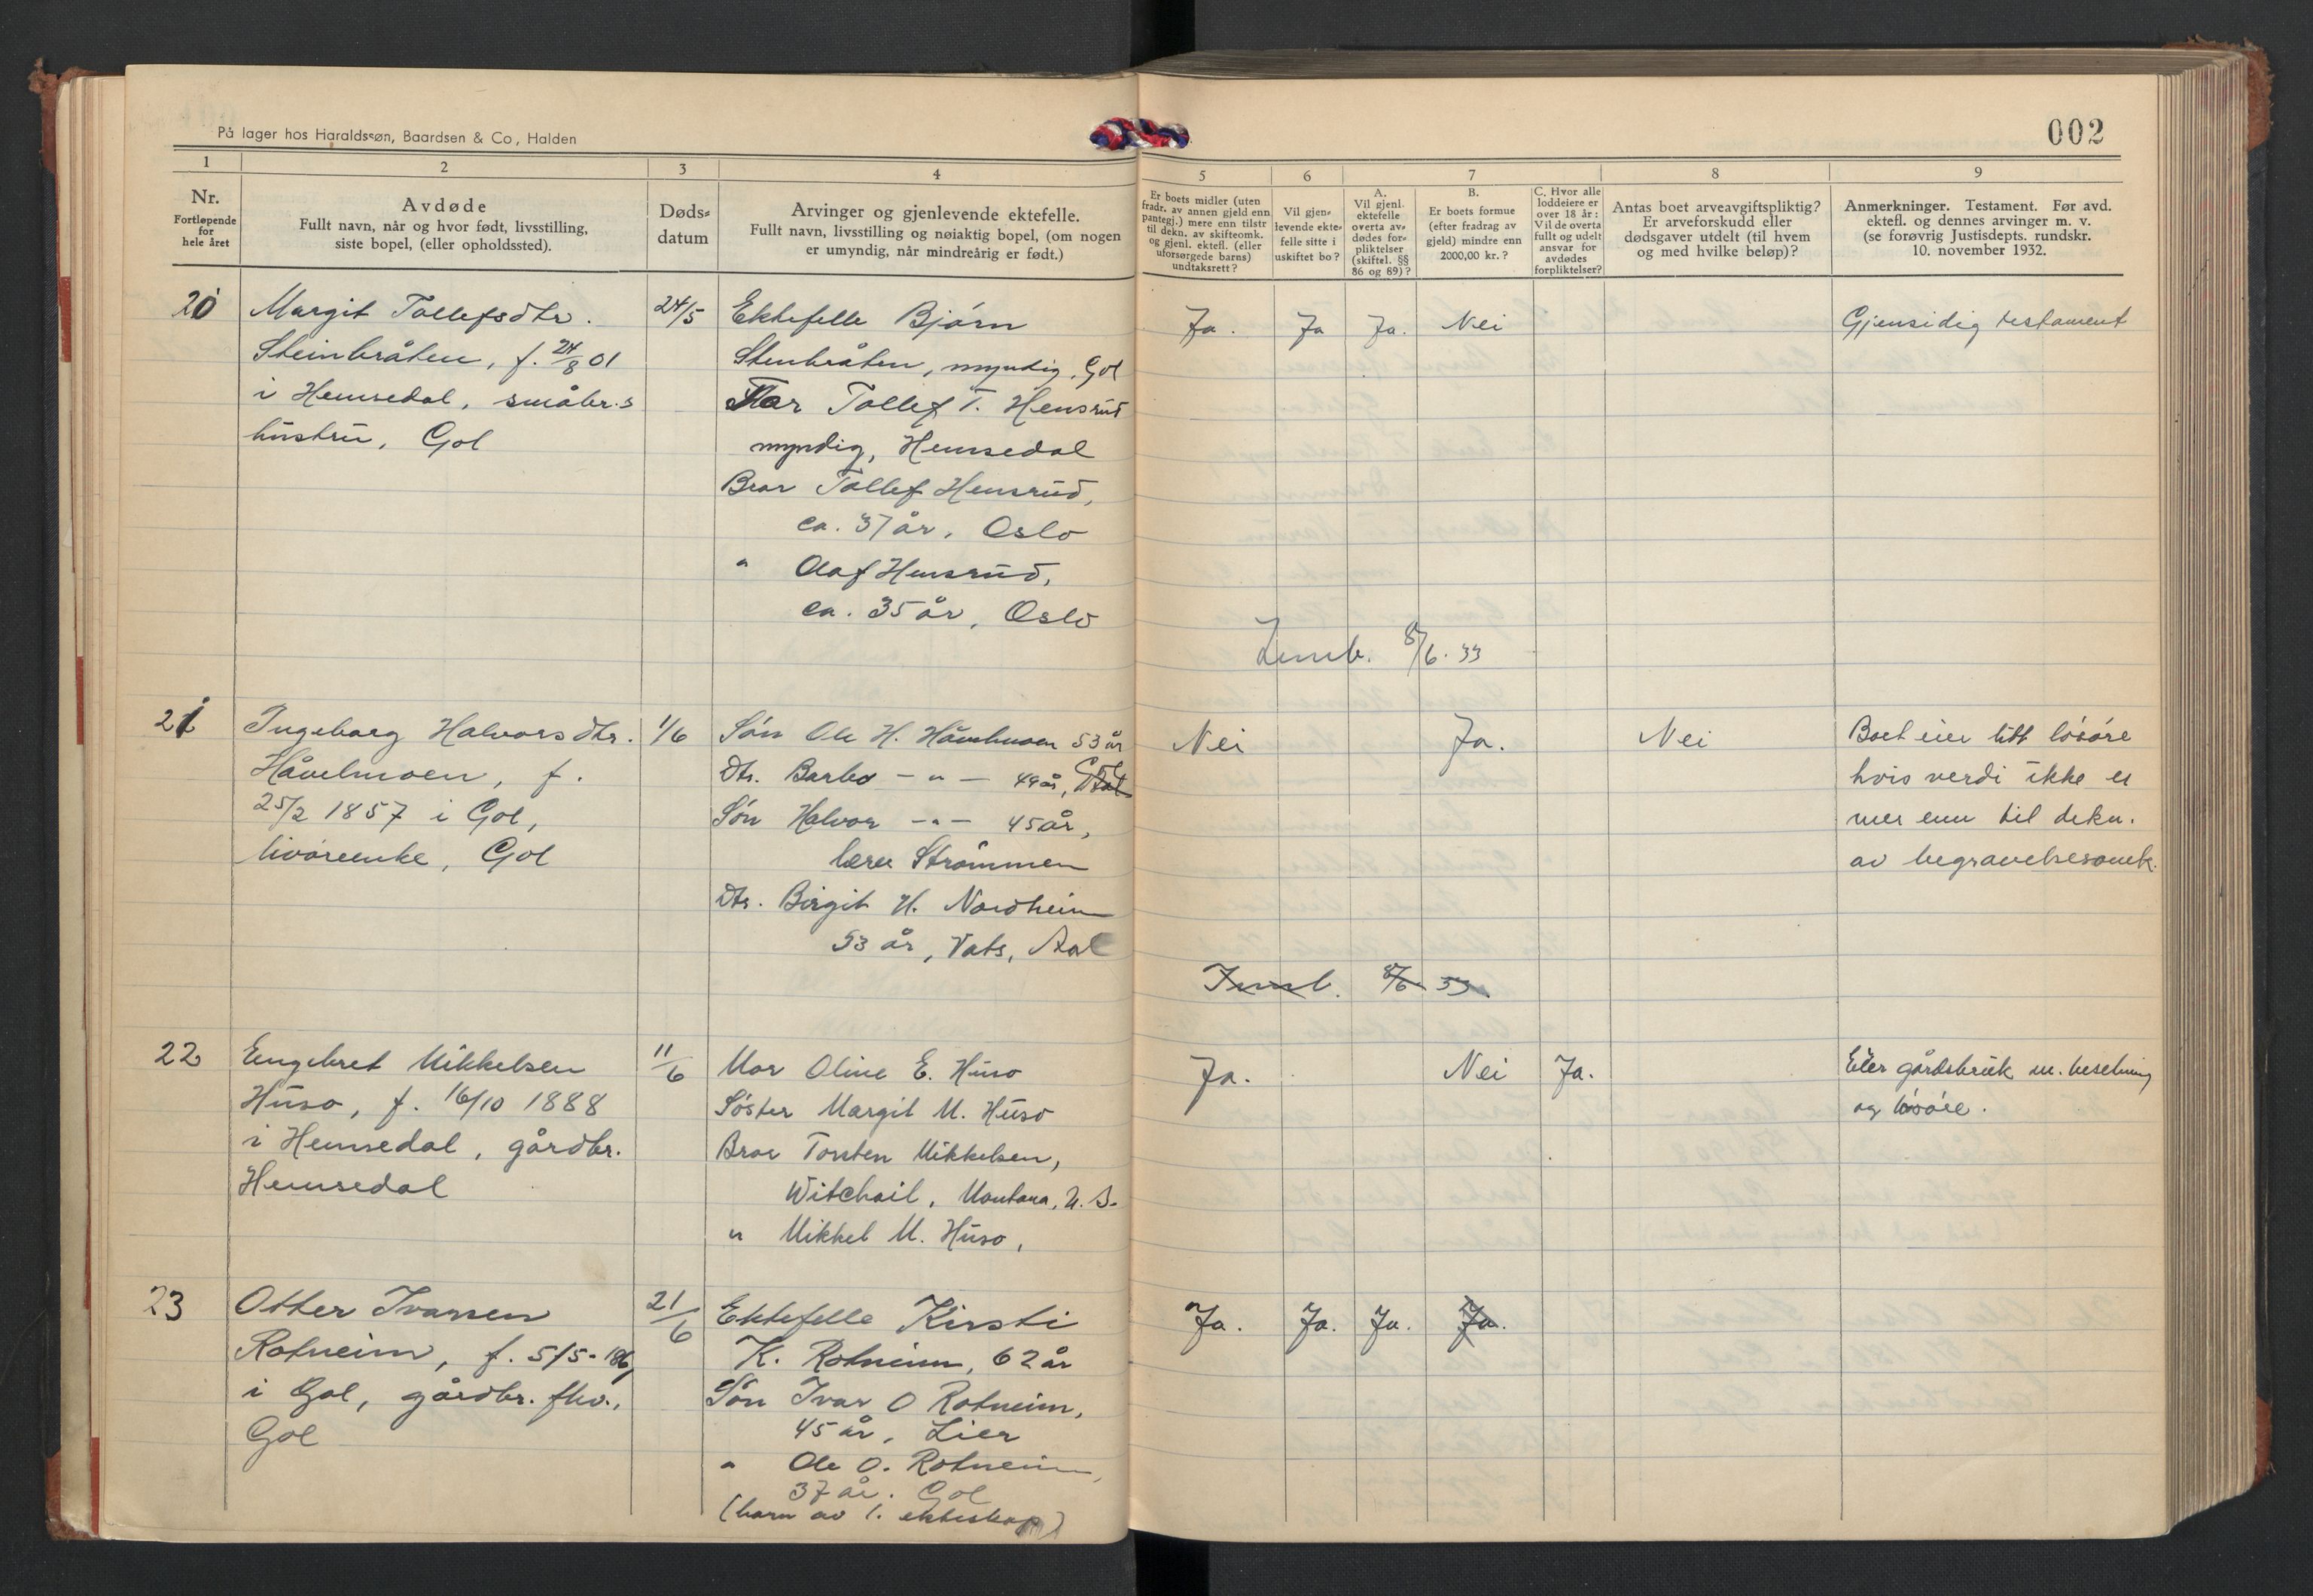 På lager hos Haraldssøn, Baardsen & Co, Halden
002
1 2 3 4 5 6 7 8 9
Nr.
Fortløpende
for
hele året
Avdøde
Fullt navn, når og hvor født, livsstilling,
siste bopel, (eller opholdssted).
Døds-
datum
Arvinger og gjenlevende ektefelle.
Fullt navn, livsstilling og nøiaktig bopel, (om nogen
er umyndig, når mindreårig er født.)
Er boets midler (uten
fradr. av annen gjeld enn
pantegj.) mere enn tilstr
til dekn. av skifteomk.
og gjenl. ektefl. (eller
uforsørgede barns)
undtaksrett?
Vil gjen-
levende ekte-
felle sitte i
uskiftet bo?
A.
Vil gjenl.
ektefelle
overta av-
dødes for-
pliktelser
(skiftel. §§
86 og 89)?
B.
Er boets formue
(efter fradrag av
gjeld) mindre enn
2000,00 kr.?
C. Hvor alle
loddeiere er
over 18 år:
Vil de overta
fullt og udelt
ansvar for
avdødes
forpliktelser?
Antas boet arveavgiftspliktig?
Er arveforskudd eller
dødsgaver utdelt (til hvem
og med hvilke beløp)?
Anmerkninger. Testament. Før avd.
ektefl. og dennes arvinger m. v.
(se forøvrig Justisdepts. rundskr.
10. november 1932.
20
Margit Tollefsdtr.
Steinbråten, f. 24/8 01
i Hemsedal, småbr.s
hustru, Gol
24/5
Ektefelle Bjørn
Stenbråten, myndig, Gol
Far Tollef T. Hensrud
myndig, Hemsedal
Bror Tollef Hensrud,
ca. 37 år, Oslo
" Olaf Hensrud,
ca. 35 år, Oslo
Ja. Ja Ja. Nei
Gjensidig testament
8/6. 33
21
Ingeborg Halvorsdtr.
Håvelmoen, f.
25/2 1857 i Gol,
livøreenke, Gol
1/6
Søn Ole H. Håvelmoen 53 år
Dtr. Barbo - " - 49 år, Gol
Søn Halvor - " - 45 år,
lærer Strømmen
Dtr. Birgit H. Nordheim
53 år, Vats, Aal
Nei Ja. Nei
Boet eier litt løsøre
hvis verdi ikke er
mer enn til dekn.
av begravelsesomk.
8/6 33.
22
Engebret Mikkelsen
Huso, f. 16/10 1888
i Hemsedal, gårdbr.
Hemsedal
11/6
Mor Oline E. Huso
Søster Margit M. Huso
Bror Torsten Mikkelsen,
Witchail, Montana, U. S.
" Mikkel M. Huso,
Ja. Nei Ja.
Eier gårdsbruk m. besetning
og løsøre.
23
Otter Ivarsen
Rotneim, f. 5/5-186
i Gol, gårdbr. fhv.,
Gol
21/6
Ektefelle Kirsti
K. Rotneim, 62 år
Søn Ivar O Rotneim,
45 år, Lier
" Ole O. Rotneim,
37 år. Gol
(barn av 1. ekteskap)
Ja. Ja. Ja. Ja.